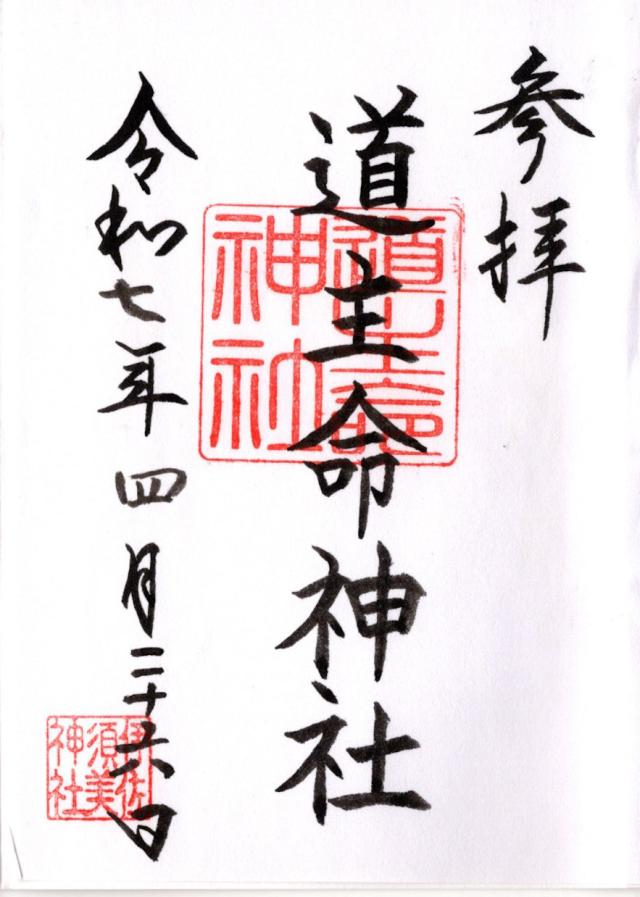 参拝
道主命神社
道主命
神社
令和七年四月二十六日
伊佐
須美
神社